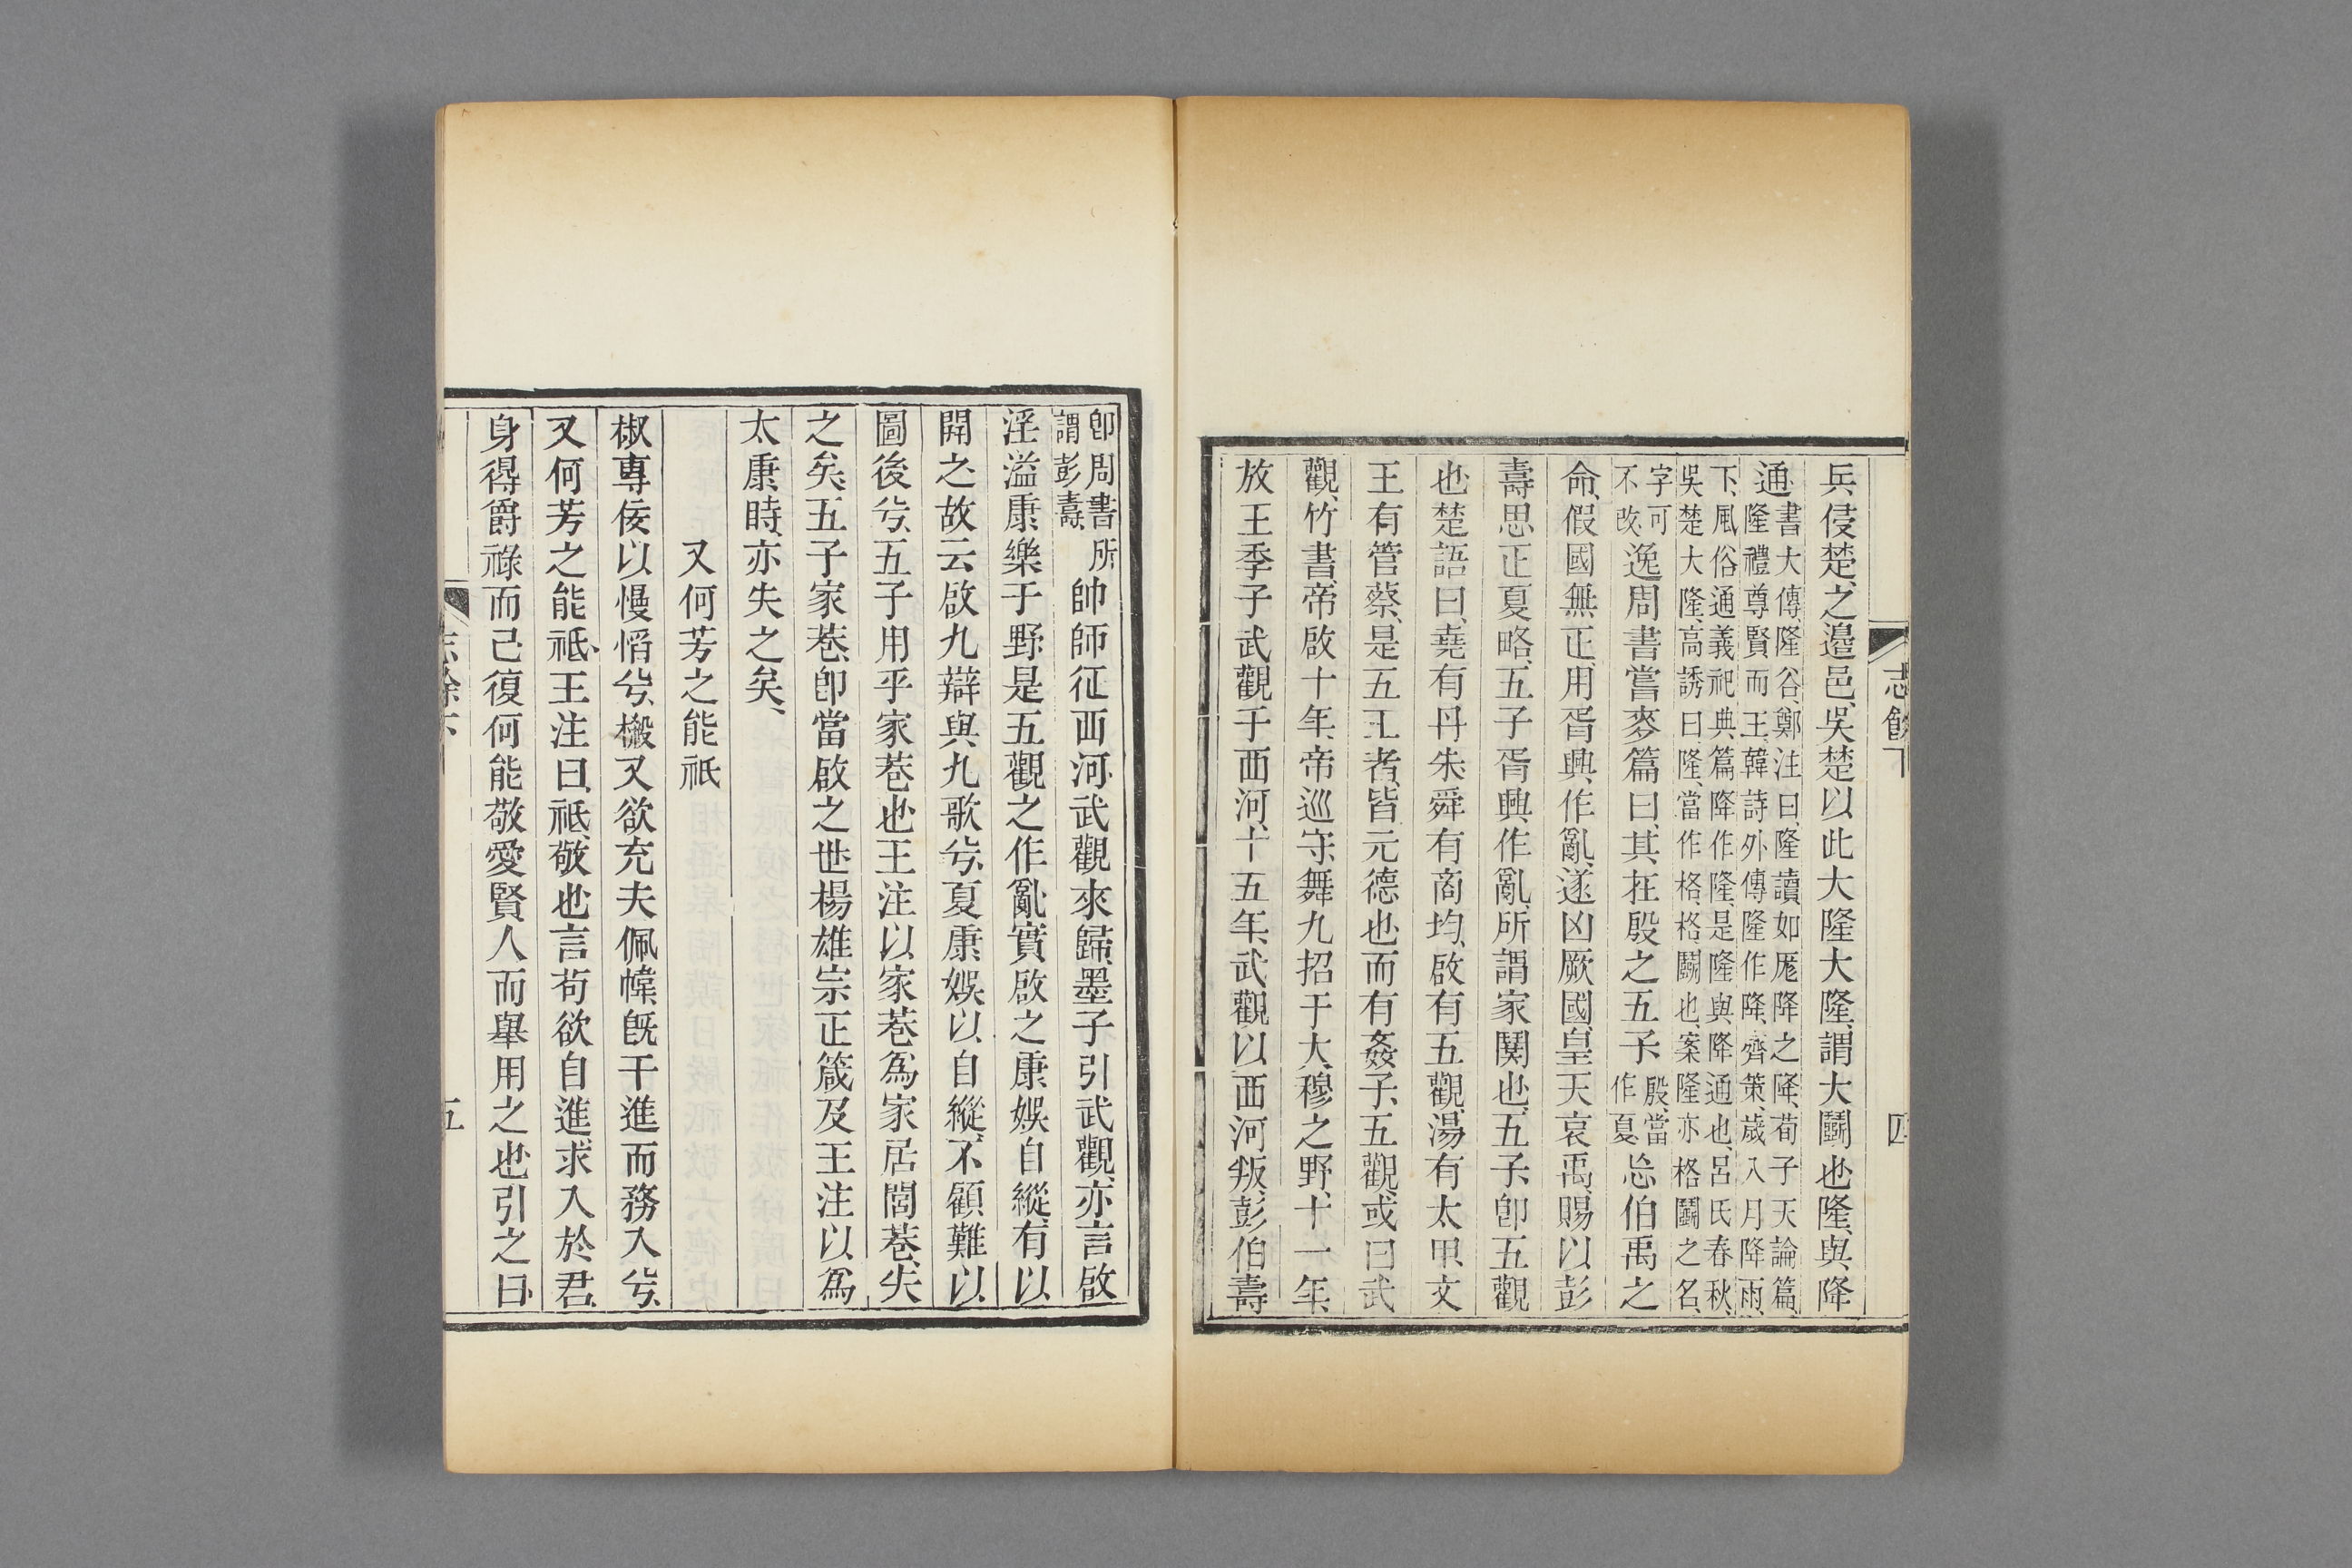 志餘下
四
兵、侵楚、之邊邑、吳楚以此大隆、大隆、謂大鬭也、隆、與降、
通、書大傳、隆谷、鄭注曰、隆讀如厖降之降、荀子天論篇、
隆禮尊賢而王、韓詩外傳隆作降、齊策、歲八月降雨、
下、風俗通義祀典篇降作隆、是隆與降通也、呂氏春秋、
吳楚大隆、高誘曰、隆、當作格、格、鬭也、案隆亦格鬭之名、
字可
不改、逸周書嘗麥篇曰、其在殷之五子、
殷、當
作夏、忘伯禹之
命、假國無正、用胥興作亂、遂凶厥國、皇天哀禹、賜以彭
壽、思正夏略、五子胥興作亂、所謂家鬨也、五子、卽五觀
也、楚語曰、堯有丹朱、舜有商均、啟有五觀、湯有太甲、文
王有管蔡、是五王者、皆元德也、而有姦子、五觀、或曰武
觀、竹書、帝啟十年、帝巡守、舞九招于大穆之野、十一年、
放王季子武觀于西河、十五年、武觀以西河叛、彭伯壽
卽周書所
謂彭壽、
帥師征西河、武觀來歸、墨子引武觀、亦言啟
淫溢康樂于野、是五觀之作亂、實啟之康娛自縱、有以
開之、故云啟九辯與九歌兮、夏康娛以自縱、不顧難以
圖後兮、五子用乎家巷也、王注以家巷爲家居閭巷、失
之矣、五子家巷、卽當啟之世、楊雄宗正箴及王注以爲
太康時、亦失之矣、
又何芳之能祇
椒專佞以慢慆兮、樧又欲充夫佩幃、旣干進而務入兮、
又何芳之能祗、王注曰、祗、敬也、言苟欲自進、求入於君、
身得爵祿而已、復何能敬愛賢人而舉用之也、引之曰、
志餘下
五